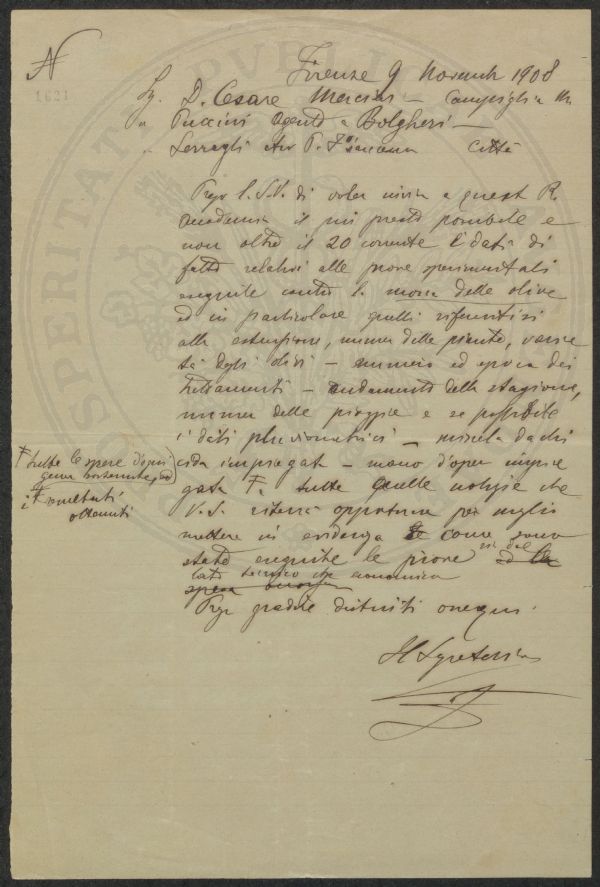 N
1621
Firenze 9 Novemb 1908
Sig. D. Cesare Campiglia M
" Puccini Agente a Bolgheri —
" Serragli Avv P. Francesco Città
Prego la S.V. di voler inviare a questa R.
Accademia il più presto possibile e
non oltre il 20 corrente i dati di
fatto relativi alle prove sperimentali
eseguite contro la mosca delle olive
ed in particolare quelli riferentisi
alla estensione, numero delle piante, varie
tà degli olivi — numero ed epoca dei
trattamenti — andamento della stagione,
numero delle pioggie e se possibile
i dati pluviometrici — miscela dachi
cida impiegata — mano d'opera impie
gata F tutte quelle notizie che
V.S. riterrà opportune per meglio
mettere in evidenza come sono
state eseguite le prove sia dal
lato tecnico che economico
F tutte le spese d'ogni
genere sostenute ed
i F resultati
ottenuti
Prego gradire distinti ossequi.
Il Segretario